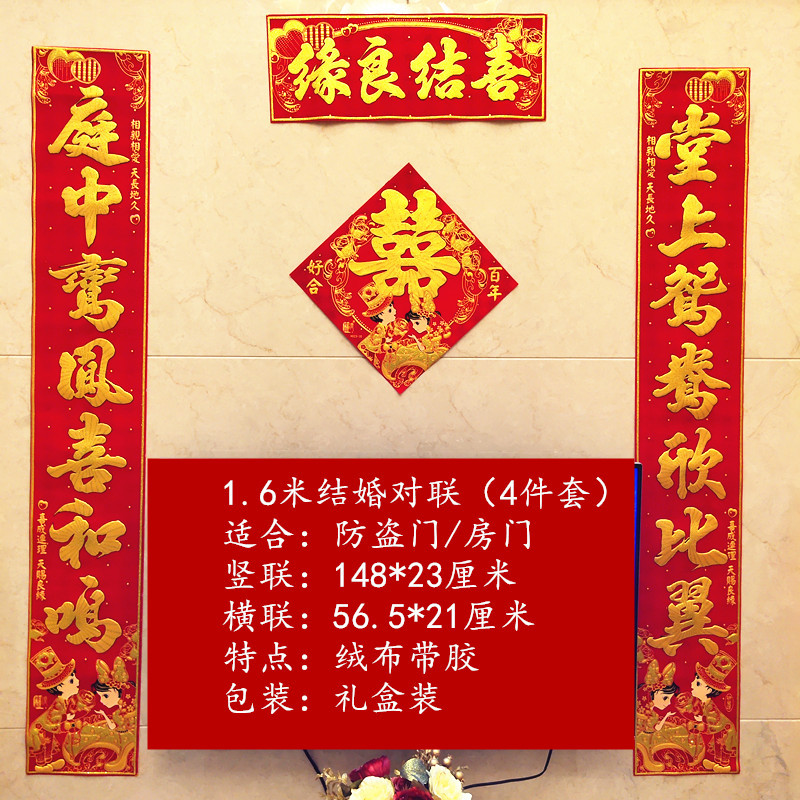 缘良结喜
堂上鸳鸯欣比翼
相親相愛 天長地久
喜成連理 天賜良緣
囍
百年
好合
庭中鸾鳳喜和鳴
相親相愛 天長地久
喜成連理 天賜良緣
1.6米结婚对联（4件套）
适合：防盗门/房门
竖联：148*23厘米
横联：56.5*21厘米
特点：绒布带胶
包装：礼盒装